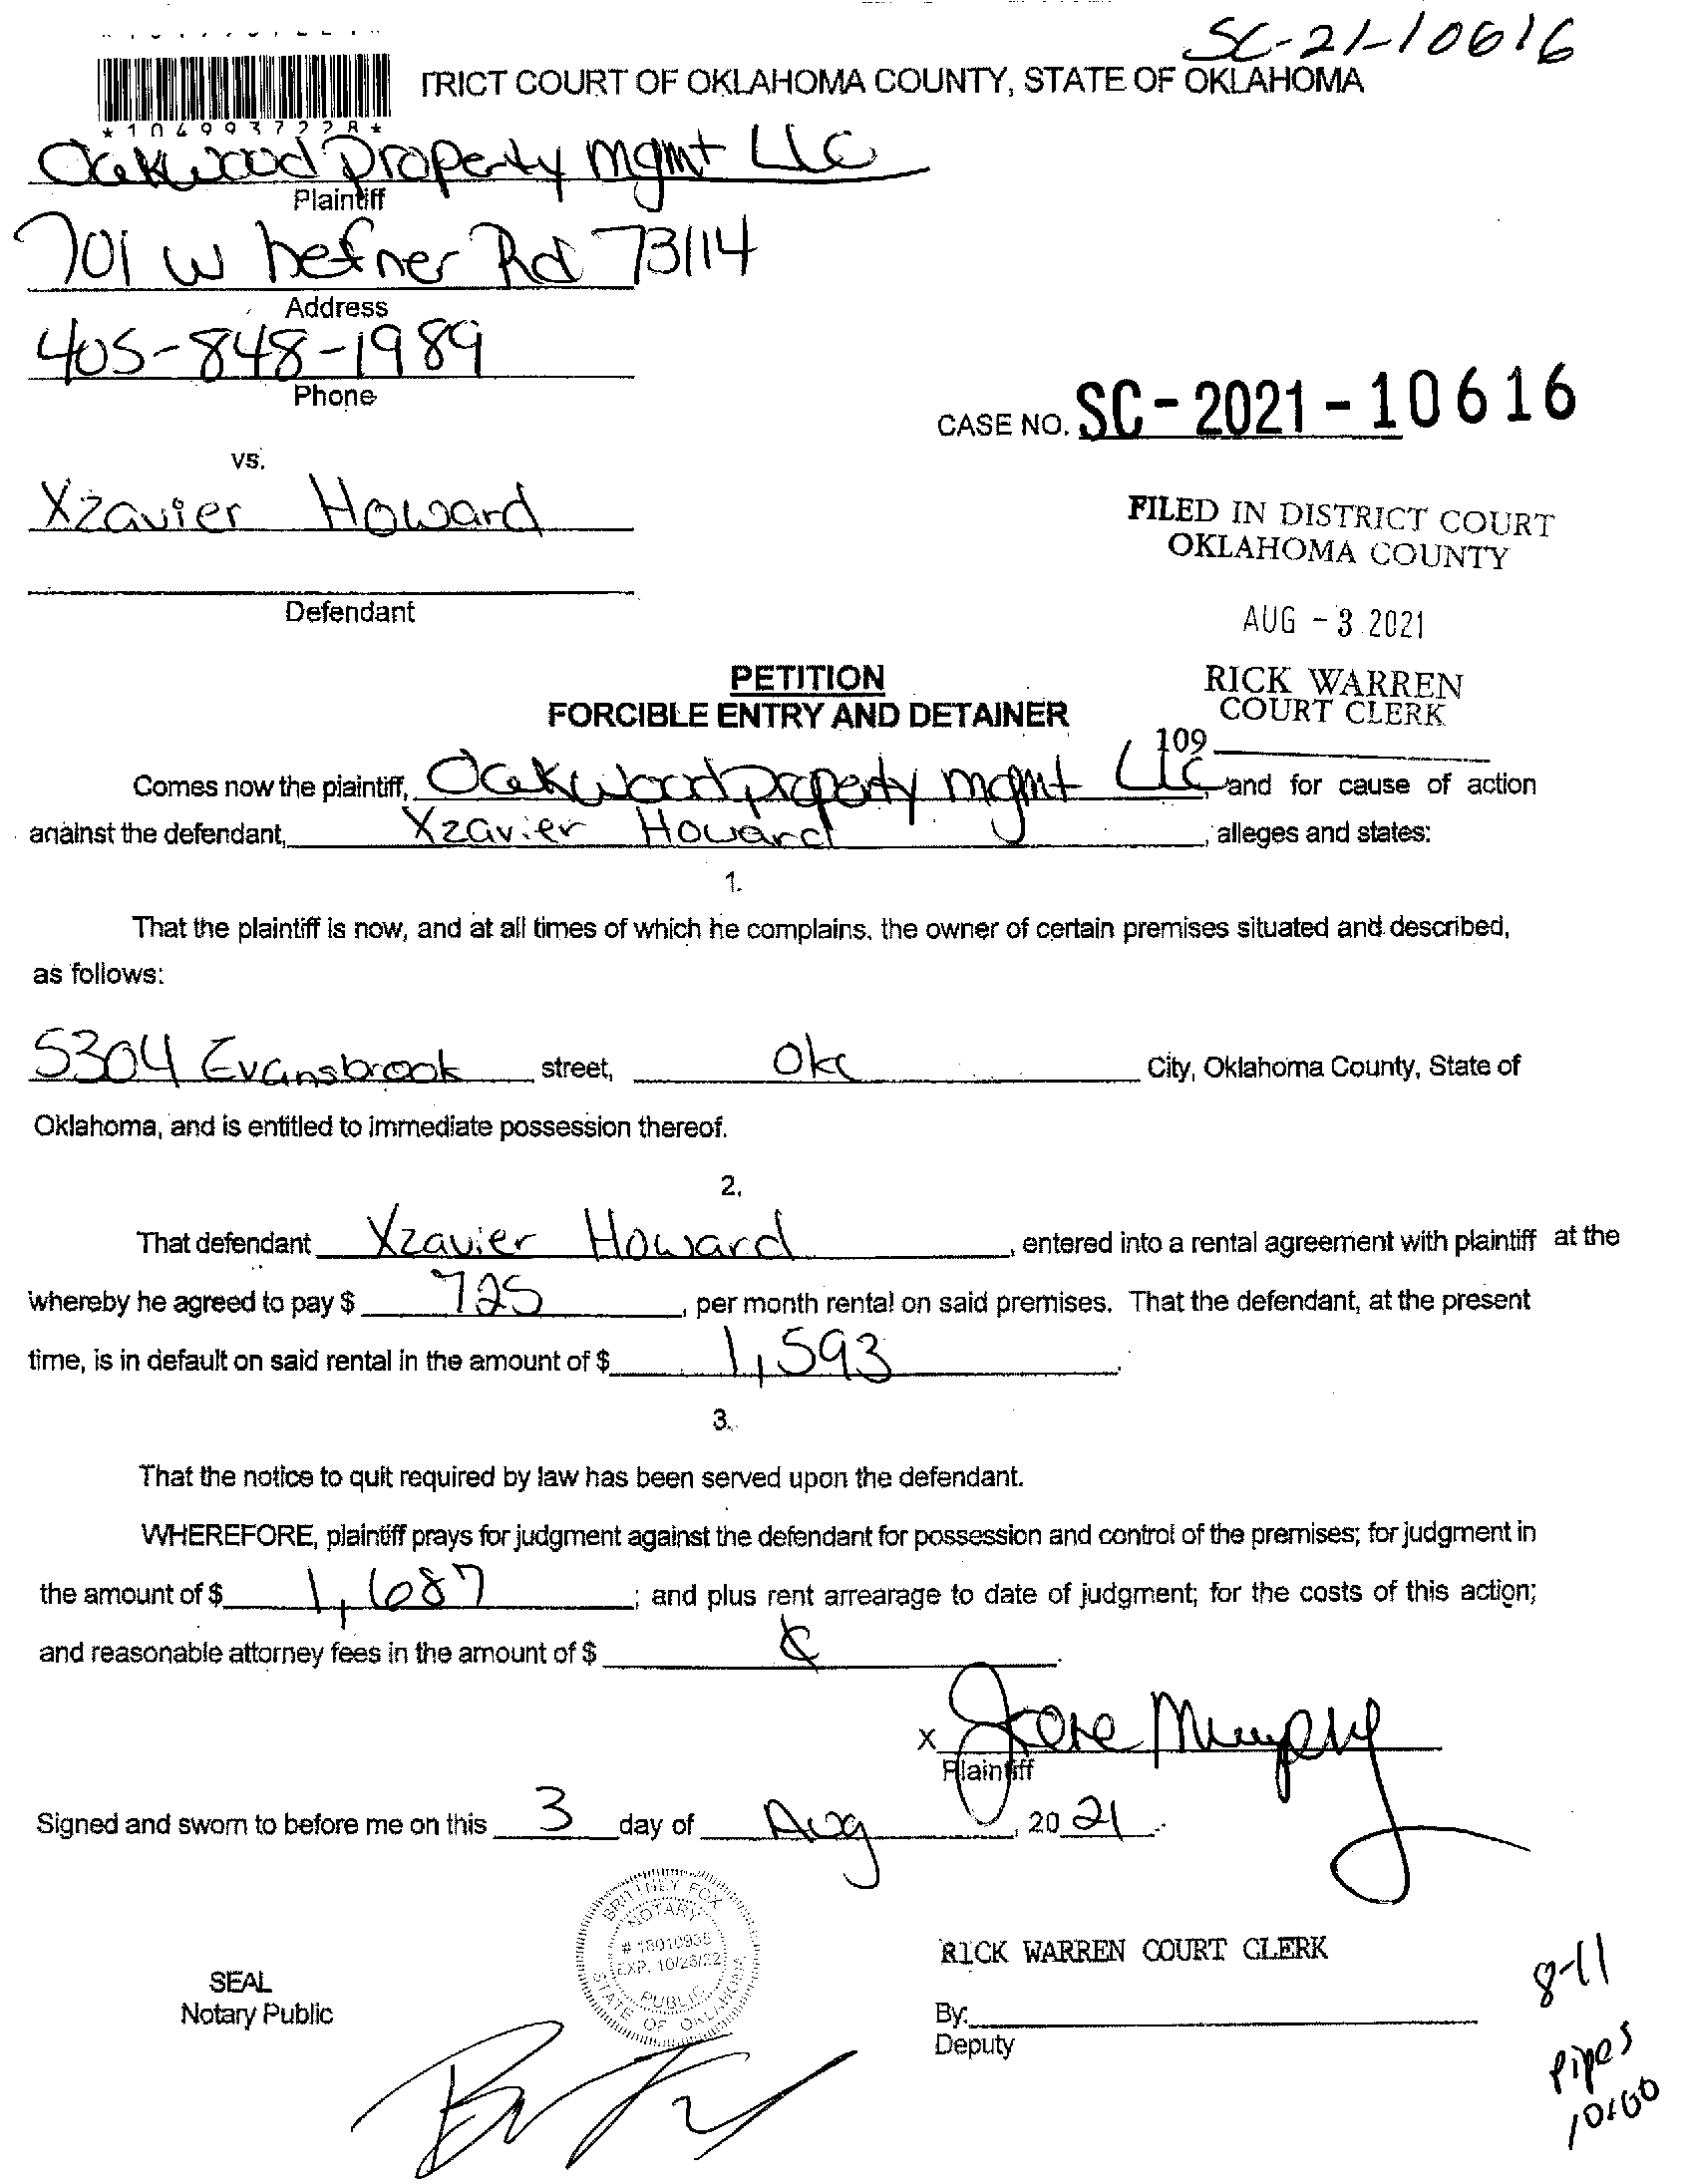 SC-21-10616
TRICT COURT OF OKLAHOMA COUNTY, STATE OF OKLAHOMA
Oakwood Property mgmt LLC
Plaintiff
701 W hefner Rd 73114
Address
405-848-1989
Phone
CASE NO. SC-2021-10616
vs.
Xzavier Howard
FILED IN DISTRICT COURT
OKLAHOMA COUNTY
Defendant
AUG - 3 2021
PETITION
RICK WARREN
COURT CLERK
FORCIBLE ENTRY AND DETAINER
109
Comes now the plaintiff, Oakwood property mgmt LLC, and for cause of action
against the defendant, Xzavier Howard, alleges and states:
1.
That the plaintiff is now, and at all times of which he complains, the owner of certain premises situated and described,
as follows:
5304 Evansbrook street, Okc City, Oklahoma County, State of
Oklahoma, and is entitled to immediate possession thereof.
2.
That defendant Xzavier Howard, entered into a rental agreement with plaintiff at the
whereby he agreed to pay $ 725, per month rental on said premises. That the defendant, at the present
time, is in default on said rental in the amount of $ 1,593.
3.
That the notice to quit required by law has been served upon the defendant.
WHEREFORE, plaintiff prays for judgment against the defendant for possession and control of the premises; for judgment in
the amount of $ 1,687; and plus rent arrearage to date of judgment; for the costs of this action;
and reasonable attorney fees in the amount of $
X Murphy
Plaintiff
Signed and sworn to before me on this 3 day of Aug, 20 21.
BRITTNEY FOX
NOTARY
# 18010938
EXP. 10/26/22
PUBLIC
STATE OF OKLAHOMA
RICK WARREN COURT CLERK
SEAL
Notary Public
By:
Deputy
8-11
Pipes
10:00